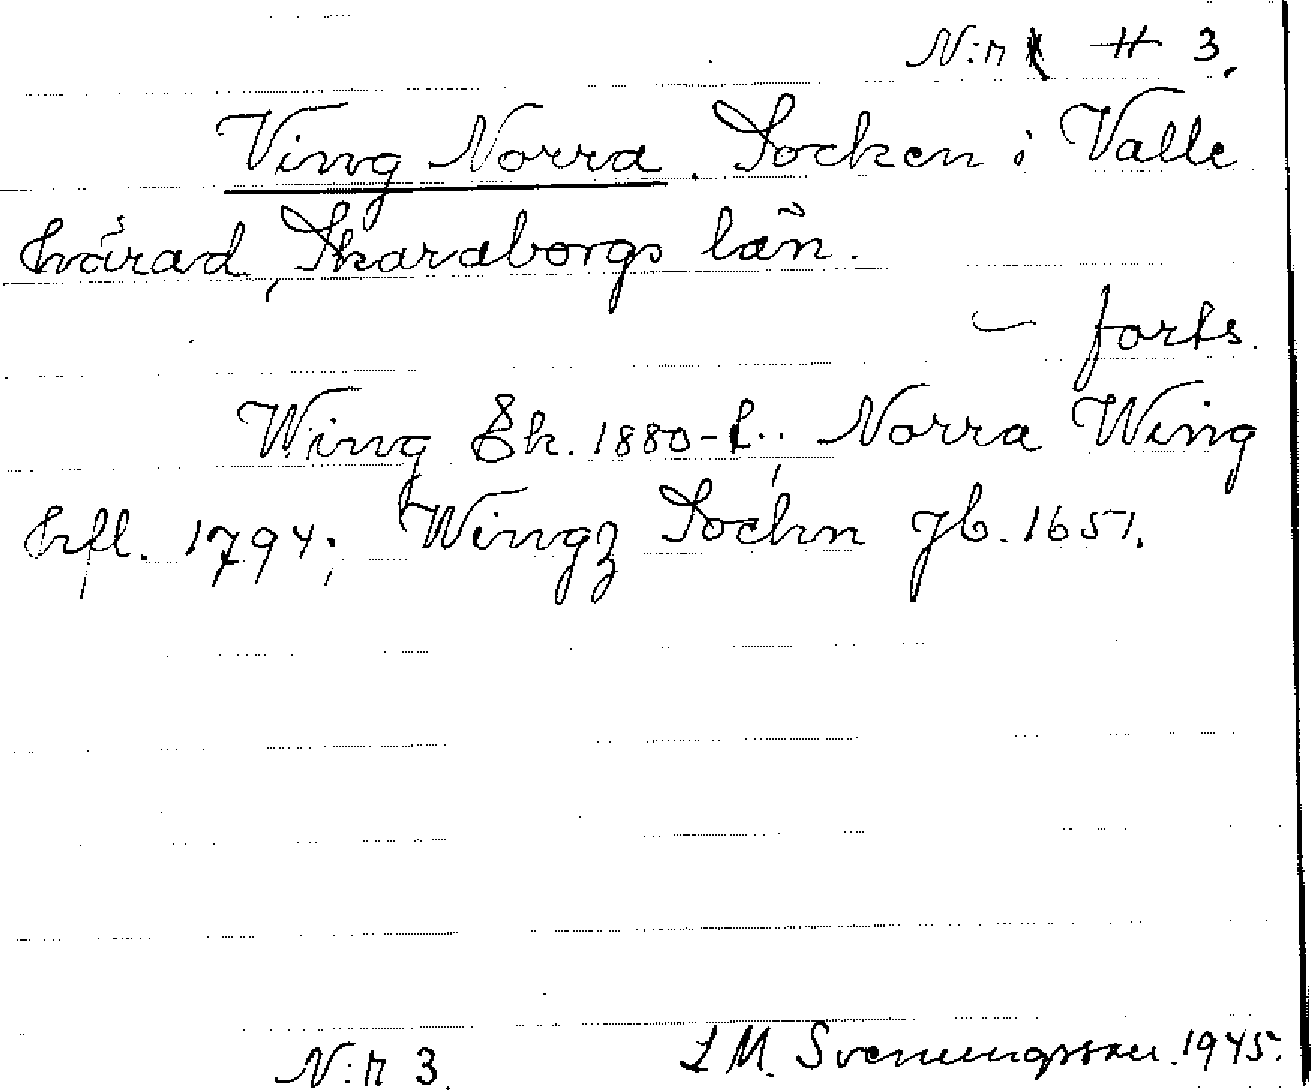 N:r 3.
Ving Norra. Socken i Valle
härad, Skaraborgs län.
– forts.
Wing Ek. 1880-t.; Norra Wing
hfl. 1794; Wingz Sochn Jb. 1651.
N:r 3. L M. Svenungsson. 1945.